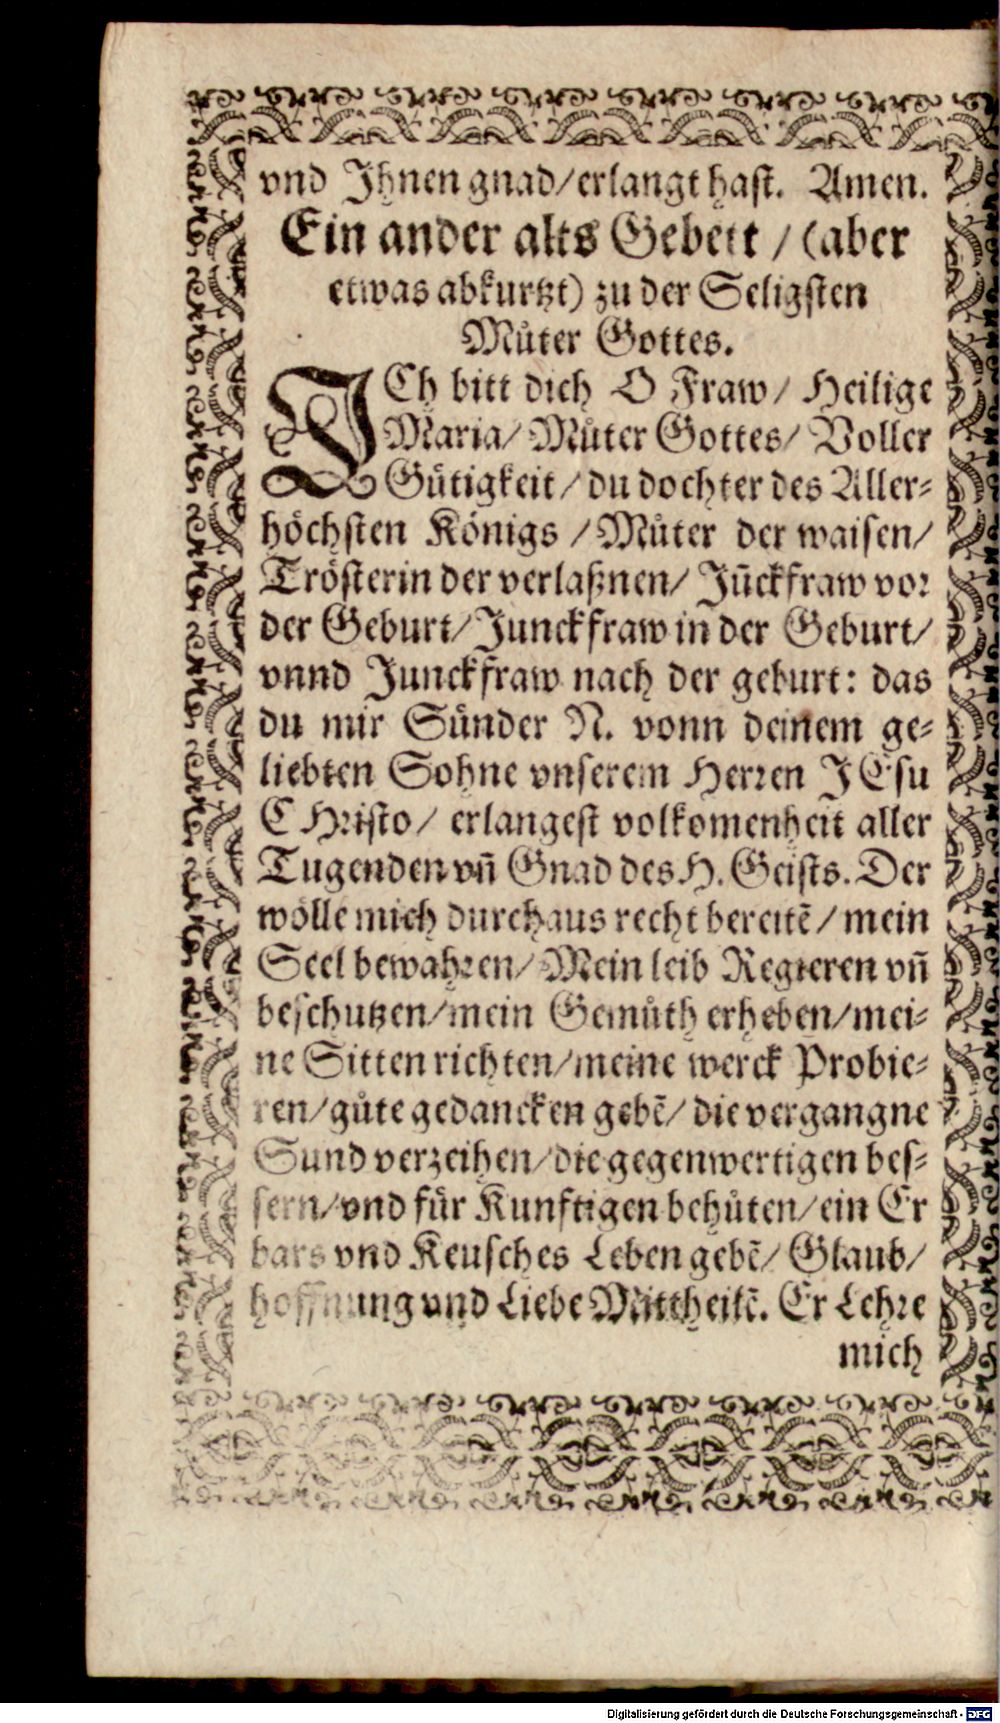 vnd Jhnen gnad/erlangt hast. Amen.
Ein ander alts Gebett / (aber
etwas abkurtzt) zu der Seligsten
Muͦter Gottes.
JCh bitt dich O Fraw/ Heilige
Maria/ Muͦter Gottes/ Voller
Guͤtigkeit/ du dochter des Aller⸗
hoͤchsten Koͤnigs /Muͦter der waisen/
Troͤsterin der verlaßnen/ Jūckfraw vor
der Geburt/ Junckfraw in der Geburt/
vnnd Junckfraw nach der geburt: das
du mir Suͤnder N. vonn deinem ge⸗
liebten Sohne vnserem Herren JEsu
CHristo/ erlangest volkomenheit aller
Tugenden vn̄ Gnad des H. Geists. Der
woͤlle mich durchaus recht bereitē/ mein
Seel bewahren/ Mein leib Regieren vn̄
beschutzen/mein Gemuͤth erheben/mei⸗
ne Sitten richten/meine werck Probie⸗
ren/guͦte gedancken gebē/ die vergangne
Sund verzeihen/die gegenwertigen bes⸗
sern/vnd fuͤr Kunftigen behuͤten/ein Er
bars vnd Keusches Leben gebē/ Glaub/
hoffnung vnd Liebe Mittheilē. Er Lehre
mich
Digitalisierung gefördert durch die Deutsche Forschungsgemeinschaft - DFG